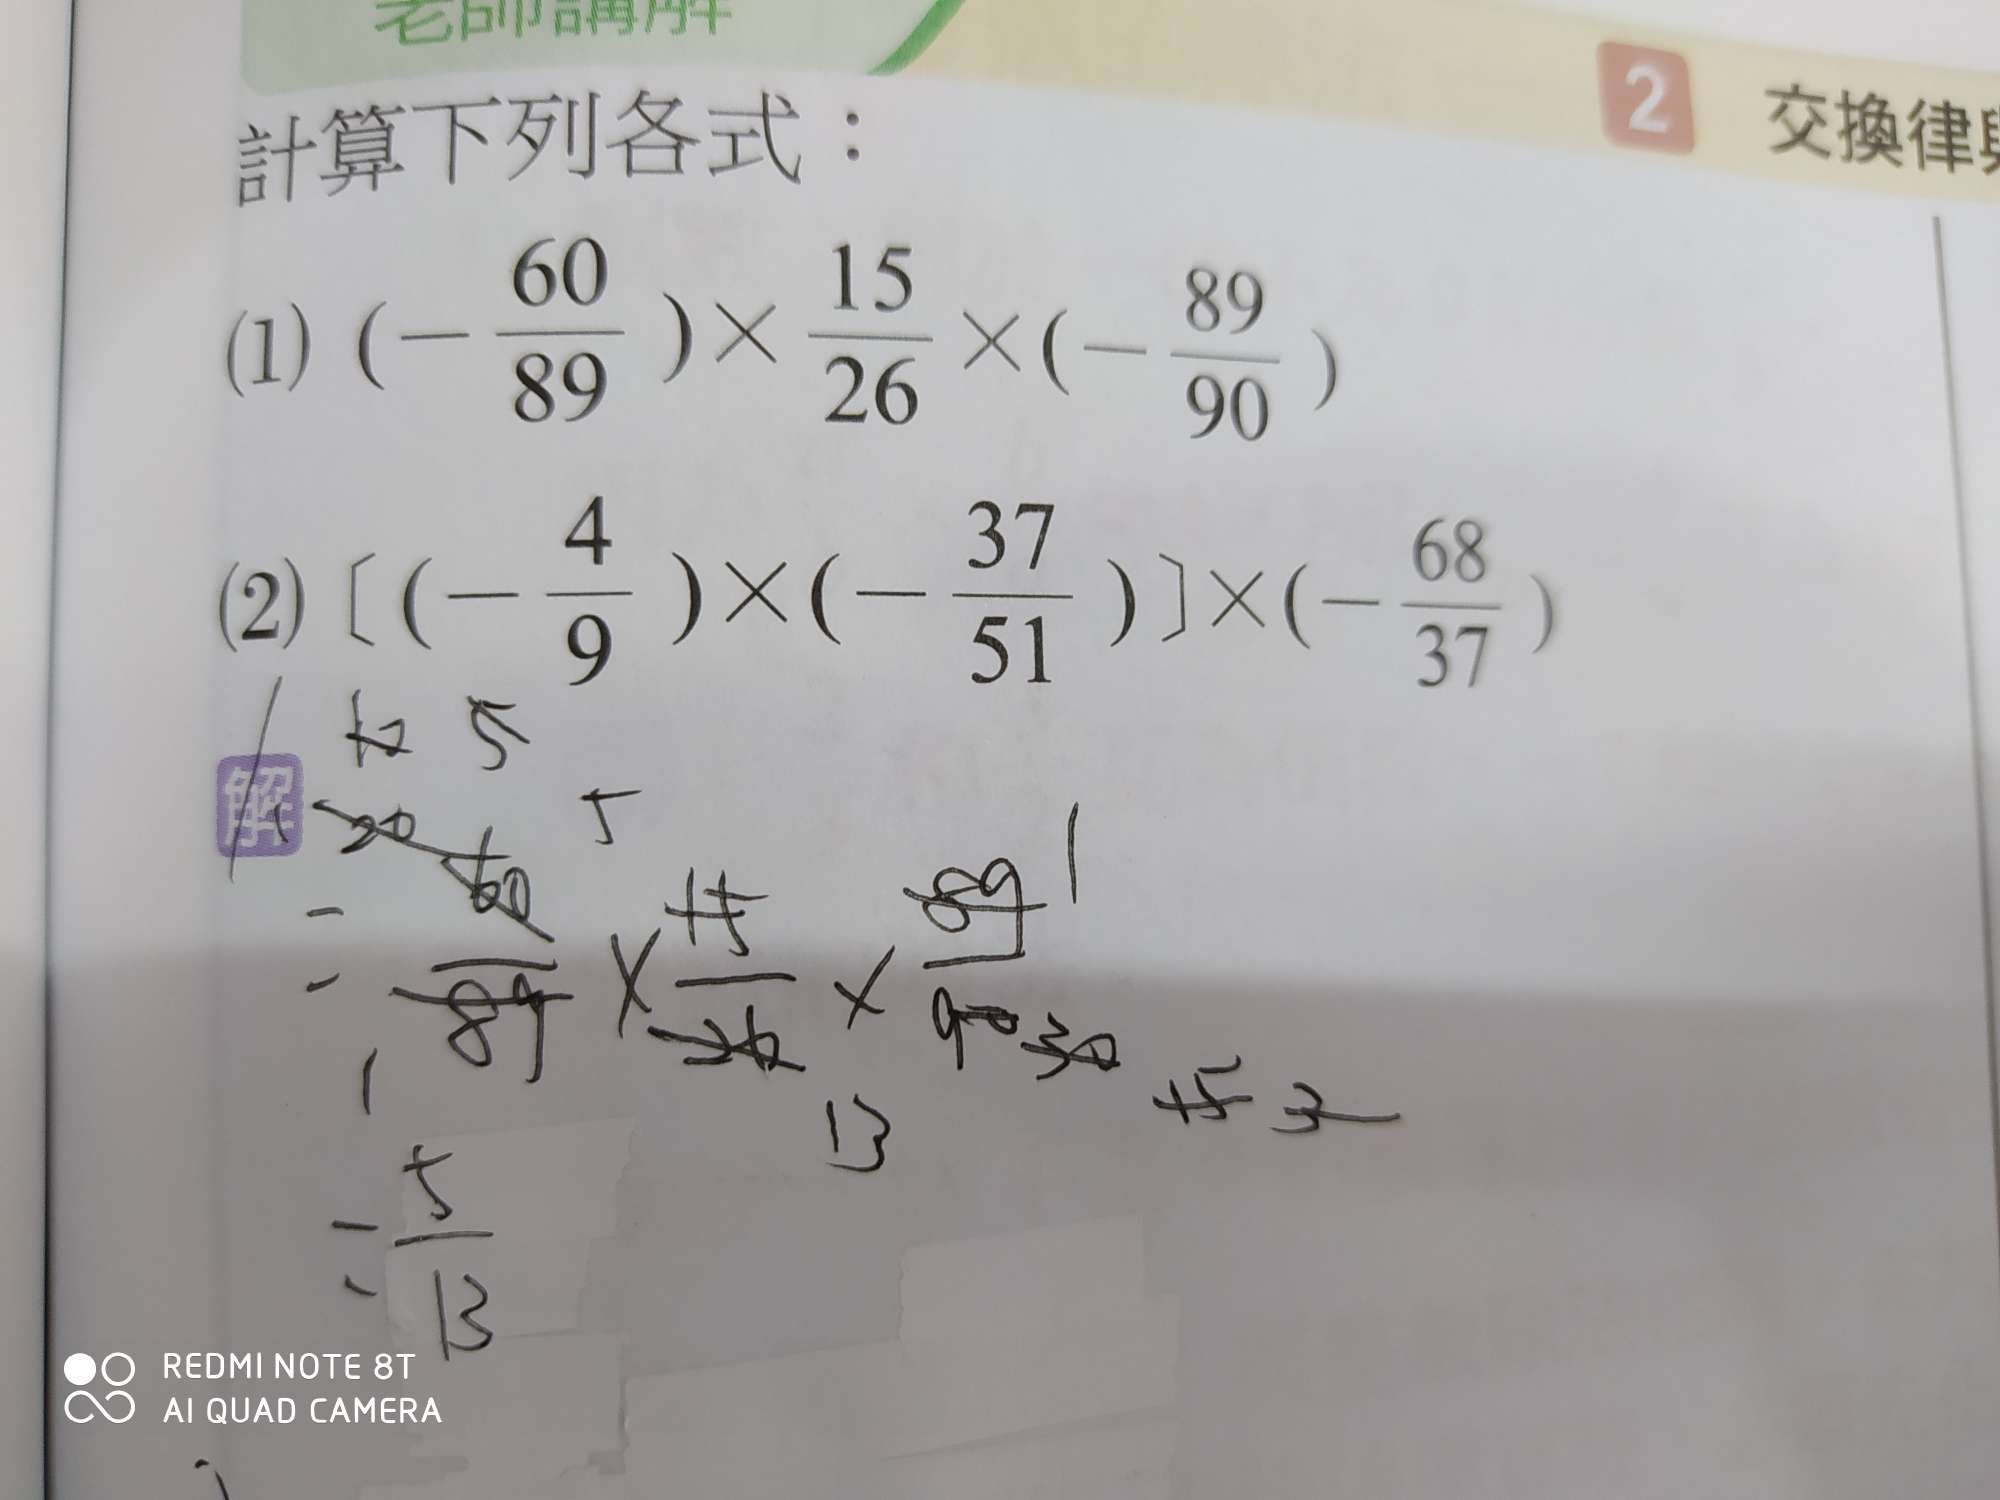 老師講解
2 交換律與
計算下列各式：
(1) (-60/89)×15/26×(-89/90)
(2) 〔(-4/9)×(-37/51)〕×(-68/37)
解
12 5
20 5
= 60/89 × 15/26 × 89/90 1
30 15 3
1 13
= 5/13
REDMI NOTE 8T
AI QUAD CAMERA